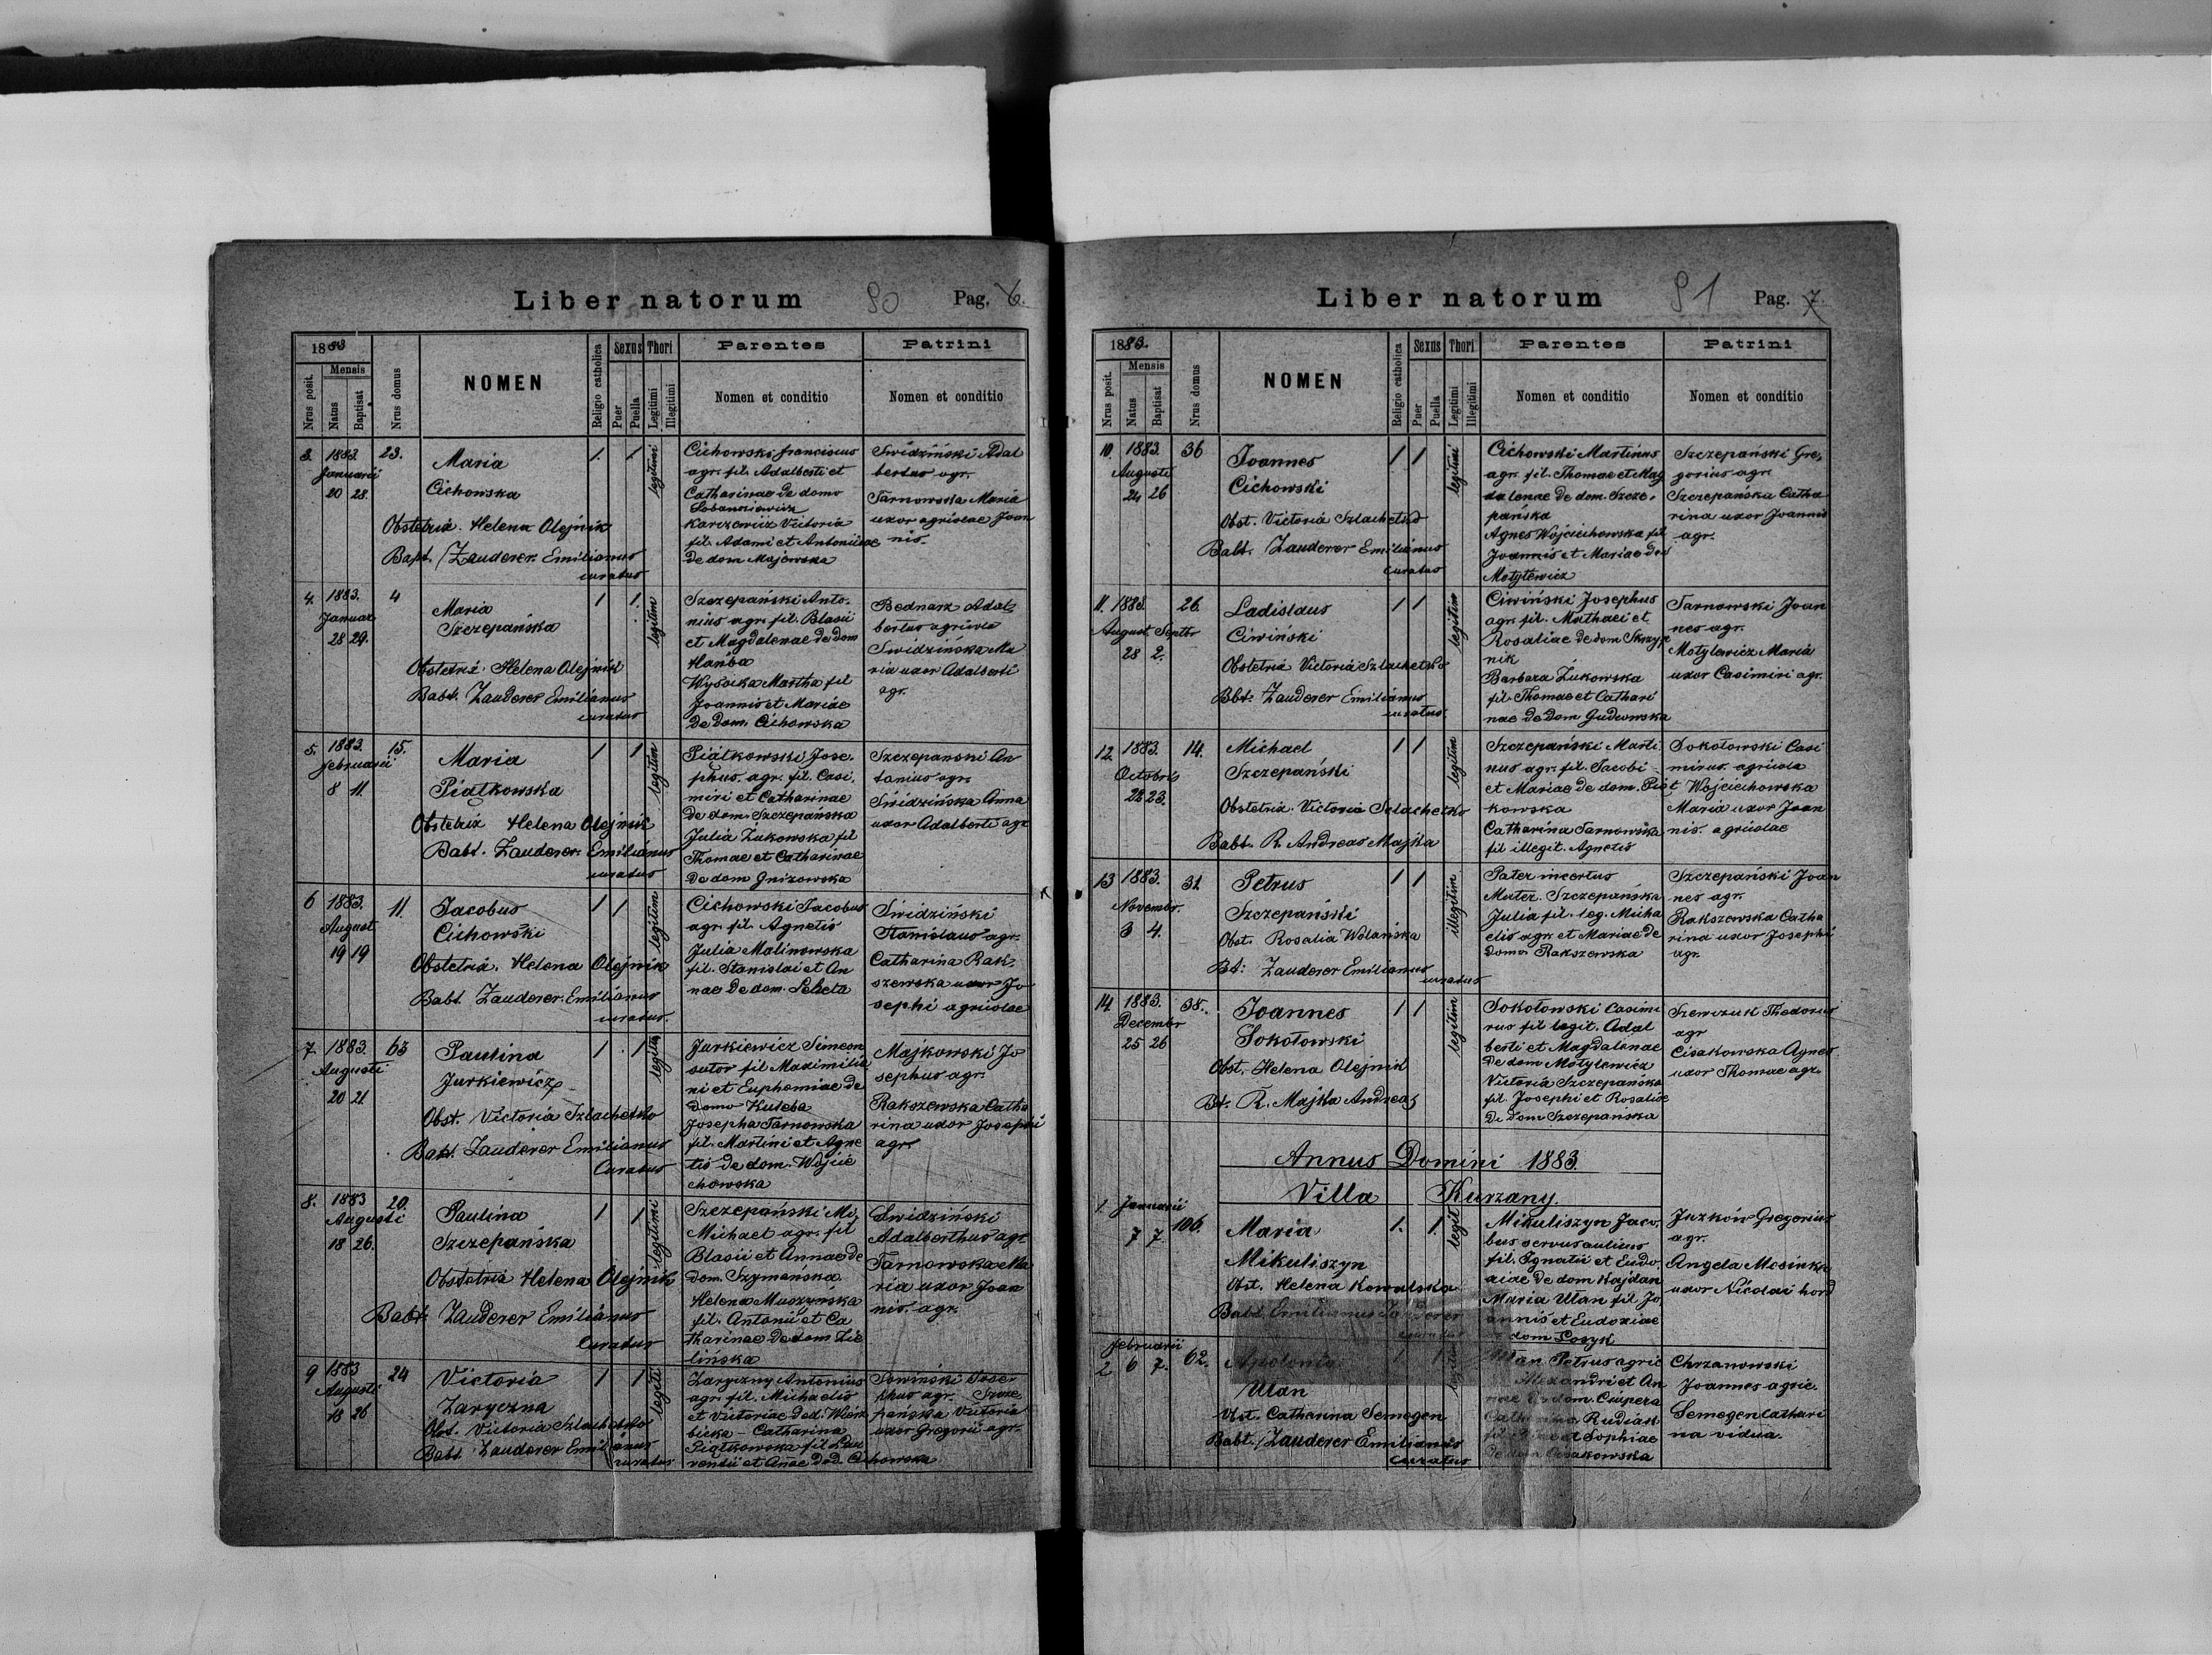 Liber natorum 90 Pag. 6.
1883
Nrus posit.
Mensis
Natus
Baptisat
Nrus domus
NOMEN
Religio catholica
Sexus
Puer
Puella
Thori
Legitimi
Illegitimi
Parentes
Nomen et conditio
Patrini
Nomen et conditio
3. 1883. 23.
Januarii
20 28.
Maria
Cichowska
Obstetrix. Helena Olejnik
Bapt. Zauderer Emilianus
curatus
1. 1. legitimi
Cichowski franciscus
agr. fil. Adalberti et
Catharinae de domo
Karzewicz Victoria
fil. Adami et Antoninae
de dom Majewska
Swidziński Adal
bertus agr.
Tarnowska Maria
uxor agricolae Joan
nis.
4. 1883. 4
Januar
28 29.
Maria
Szczepańska
Obstetrix. Helena Olejnik
Babt. Zauderer Emilianus
curatus
1 1. legitim
Szczepański Anto-
nius agr. fil. Blasii
et Magdalenae de dom
Hańba
Wysocka Martha fil
Joannis et Mariae
de dom. Cichowska
Bednarz Adal
bertus agricola
Swidzińska Ma
ria uxor Adalberti
agr.
5. 1883. 15.
februarii
8 11.
Maria
Piątkowska
Obstetrix Helena Olejnik
Babt. Zauderer Emilianus
curatus
1 1 legitim
Piątkowski Jose-
phus agr. fil. Casi.
miri et Catharinae
de dom. Szczepańska
Julia Żukowska fil
Thomae et Catharinae
de dom Gnizowska
Szczepanski An
tonius agr.
Swidzińska Anna
uxor Adalberti agr
6 1883. 11.
August
19 19
Jacobus
Cichowski
Obstetrix. Helena Olejnik
Babt Zauderer Emilianus
curatus.
1 1 legitim
Cichowski Jacobus
agr. fil. Agnetis
Julia Malinowska
fil. Stanislai et An
nae de dom.
Świdziński
Stanislaus agr.
Catharina Rak-
szewska uxor Jo
sephi agricolae
7. 1883. 63
Augusti
20 21.
Paulina
Jurkiewicz
Obst. Victoria Szlachetko
Babt. Zauderer Emilianus
Curatus
1 1 legitim
Jurkiewicz Simeon
sutor fil Maximilia
ni et Euphemiae de
domo Kuleba
Josepha Tarnowska
fil. Martini et Agne
tis de dom. Wojcie
chowska
Majkowski Jo
sephus agr.
Rakszewska Catha
rina uxor Josephi
agr.
8. 1883 20.
Augusti
18 26.
Paulina
Szczepańska
Obstetrix Helena Olejnik
Babt. Zauderer Emilianus
Curatus
1 1 legitimi
Szczepański Mi,
Michael agr. fil
Blasii et Annae de
dom. Szymańska
Helena Muszyńska
fil. Antonii et Ca
tharinae de dom. Zie
lińska
Swidziński
Adalberthus agr
Tarnowska Ma
ria uxor Joan
nis. agr.
9 1883 24
Augusti
18 26
Victoria
Zaryczna
Obst. Victoria Szlachetko
Babt. Zauderer Emilianus
curatus
1 1 legiti
Zaryczny Antonius
agr. fil. Michaelis
et Victoriae de d. Wierz
bicka - Catharina
Piątkowska fil Lau
rentii et Anae de d Cichowska
Sowiński Jose-
phus agr. Szcze
pańska Victoria
uxor Gregorii agr.
Liber natorum 91 Pag. 7.
1883.
Nrus posit.
Mensis
Natus
Baptisat
Nrus domus
NOMEN
Religio catholica
Sexus
Puer
Puella
Thori
Legitimi
Illegitimi
Parentes
Nomen et conditio
Patrini
Nomen et conditio
10. 1883. 36
Augusti
24 26
Joannes
Cichowski
Obst. Victoria Szlachetko
Babt. Zauderer Emilianus
curatus
1 1 legitimi
Cichowski Martinus
agr. fil. Thomae et Mag
dalenae de dom. Szcze-
pańska
Agnes Wojciechowska fil
Joannis et Mariae de d
Motylewicz
Szczepański Gre,
gorius agr.
Szczepańska Catha
rina uxor Joannis
agr.
11. 1883. 26.
August Septbr
28 2.
Ladislaus
Ciwiński
Obstetrix Victoria Szlachetko
Bbt. Zauderer Emilianus
curatus.
1 1 legitim
Ciwiński Josephus
agr. fil. Mathaei et
Rosaliae de dom Skrzyp
nik
Barbara Żukowska
fil. Thomae et Cathari
nae de dom
Tarnowski Joan
nes agr.
Motylewicz Maria
uxor Casimiri agr.
12. 1883. 14.
Octobris
22 23.
Michael
Szczepański
Obstetrix. Victoria Szlachetko
Babt. R. Andreas Majka
1 1 legitim
Szczepański Marti
nus agr. fil. Jacobi
et Mariae de dom. Piąt
kowska
Catharina Tarnowska
fil illegit. Agnetis
Sokołowski Casi
mirus. agricola
Wojciechowska
Maria uxor Joan
nis. agricolae
13 1883. 31
Novembr.
3 4.
Petrus
Szczepański
Obst. Rosalia Wolańska
Bt: Zauderer Emilianus
curatus
1 1 illegitim
Pater incertus
Mater. Szczepańska
Julia fil. leg. Micha
elis agr. et Mariae de
domo Rakszewska
Szczepański Joan
nes agr.
Rakszewska Catha
rina uxor Josephi
agr.
14 1883. 38.
Decembr
25 26
Joannes
Sokołowski
Obst. Helena Olejnik
Bt. R. Majka Andreas
1 1 legitim
Sokołowski Casimi
rus fil legit. Adal
berti et Magdalenae
de dom Motylewicz
Victoria Szczepańska
fil. Josephi et Rosaliae
de dom Szczepańska
Szewczuk Thedorus
agr
Cisakowska Agnes
uxor Thomae agr.
Annus Domini 1883.
Villa Kurzany.
1. Januarii
7 7 106
Maria
Mikuliszyn
Obst. Helena Kowalska
Babt Emilianus Zauderer
curatus
1. 1. legit
Mikuliszyn Jaco.
bus servus aulicus
fil. Ignatii et Eudo.
xiae de dom Kajdan
Maria Ulan fil Jo
annis et Eudoxiae
dom Łosyk
Juzków Gregorius
agr.
Angela Mosinka
uxor Nicolai hord
februarii
2 6 7. 62.
Apolonia
Ulan
Obst. Catharina Semegen
Babt. Zauderer Emilianus
curatus
1. 1 legitim
Ulan Petrus agric
Alexandri et An
nae de dom. Ciupera
Catharina Rudiak
et Sophiae
de dom Cisakowska
Chrzanowski
Joannes agric.
Semegen Cathari
na vidua.